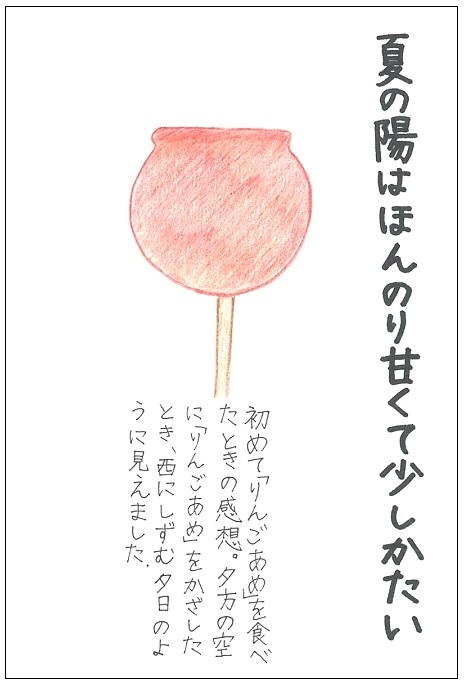 夏の陽はほんのり甘くて少しかたい
初めて「りんごあめ」を食べ
たときの感想。夕方の空
に「りんごあめ」をかざした
とき、西にしずむ夕日のよ
うに見えました.